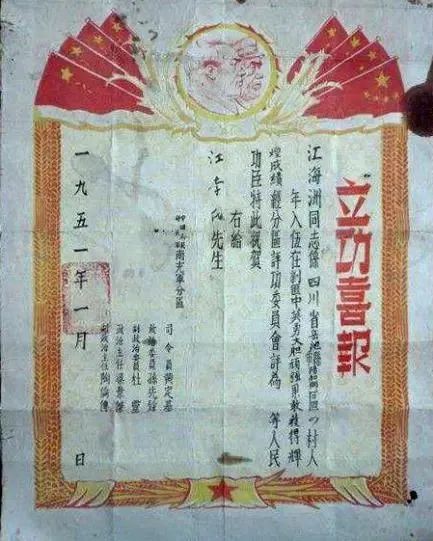 立功喜報
江海洲同志係四川省岳池縣村人
年入伍在剿匪中英勇大胆頑強果敢獲得輝
煌成績經分區評功委員會評為 等人民
功臣特此祝賀
右給
江 先生
南充軍分區
司令員黃定基
政治委員孫先餘
副政治委員杜
政治主任梁
副政治主任陶
一九五一年一月 日